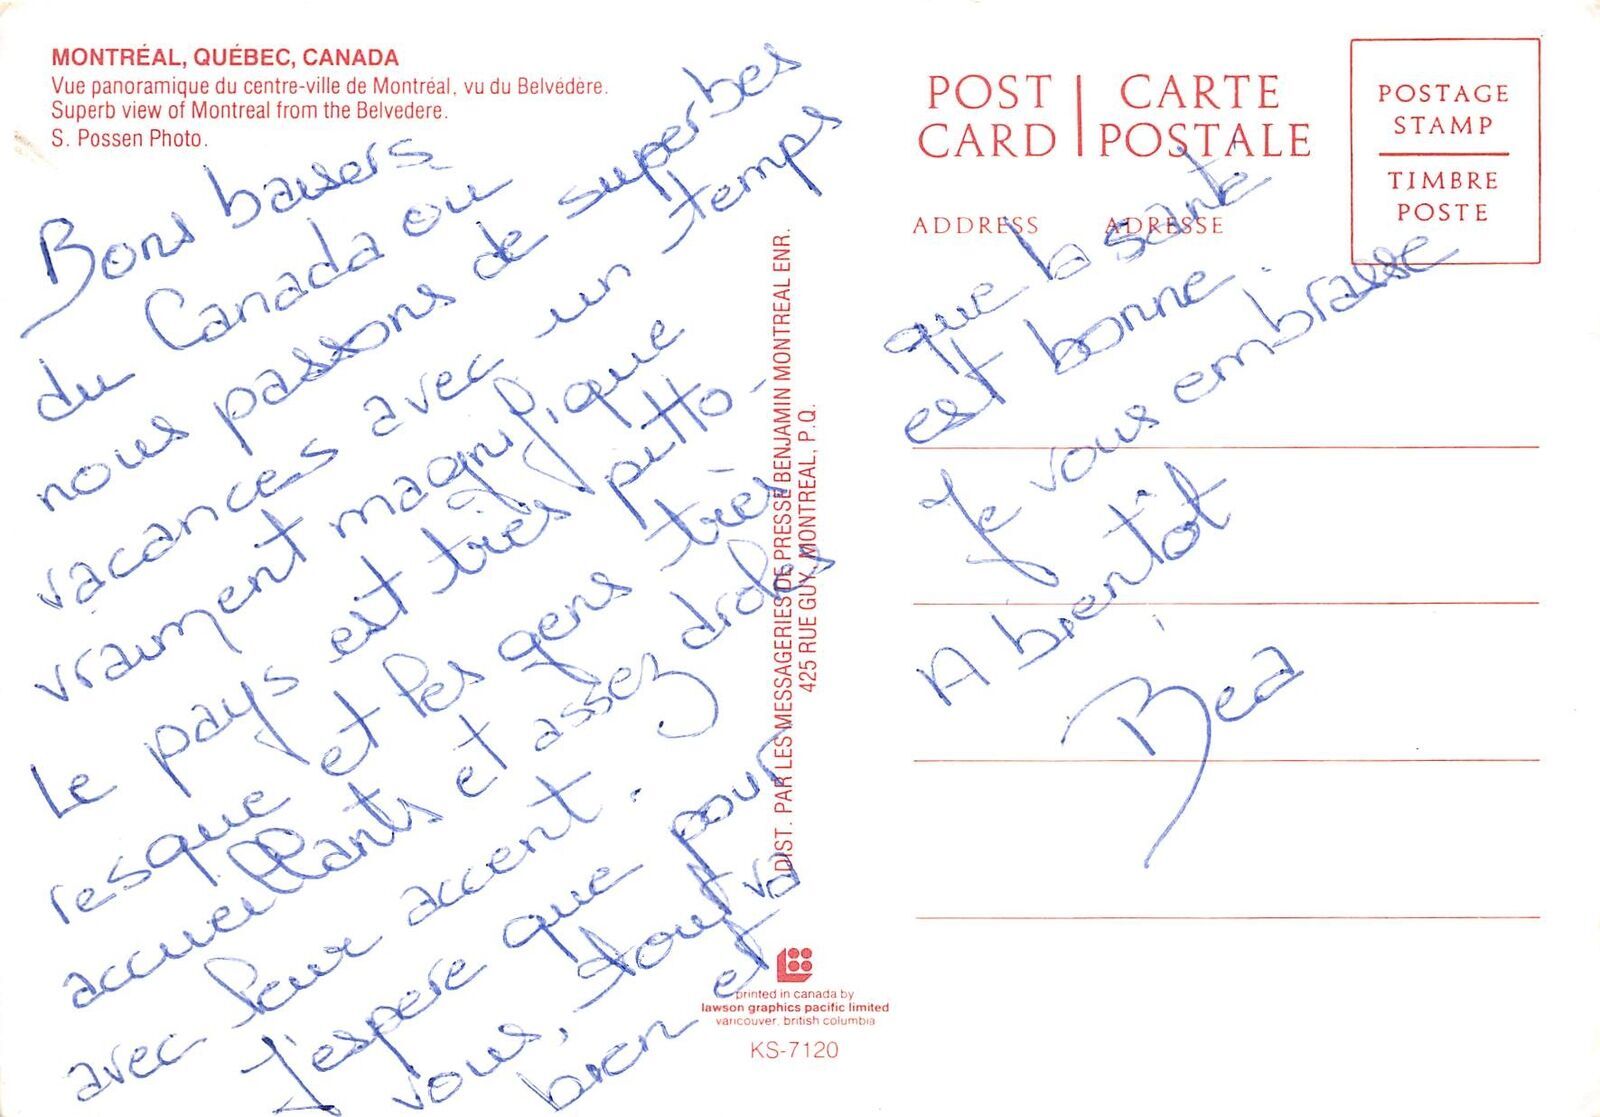 MONTRÉAL, QUÉBEC, CANADA
Vue panoramique du centre-ville de Montréal, vu du Belvédère.
Superb view of Montreal from the Belvedere.
S. Possen Photo.
Bons baisers
du Canada ou
nous passons de superbes
vacances avec un temps
vraiment magnifique
Le pays est très pitto-
resque et les gens très
accueillants et assez drôles
avec leur accent.
J'espere que pour
vous, tout va
bien et
DIST. PAR LES MESSAGERIES DE PRESSE BENJAMIN MONTREAL ENR.
425 RUE GUY, MONTREAL, P.Q.
printed in canada by
lawson graphics pacific limited
vancouver, british columbia
KS-7120
POST CARD
CARTE POSTALE
POSTAGE
STAMP
TIMBRE
POSTE
ADDRESS
ADRESSE
que la santé
est bonne.
Je vous embrasse
A bientôt
Bea